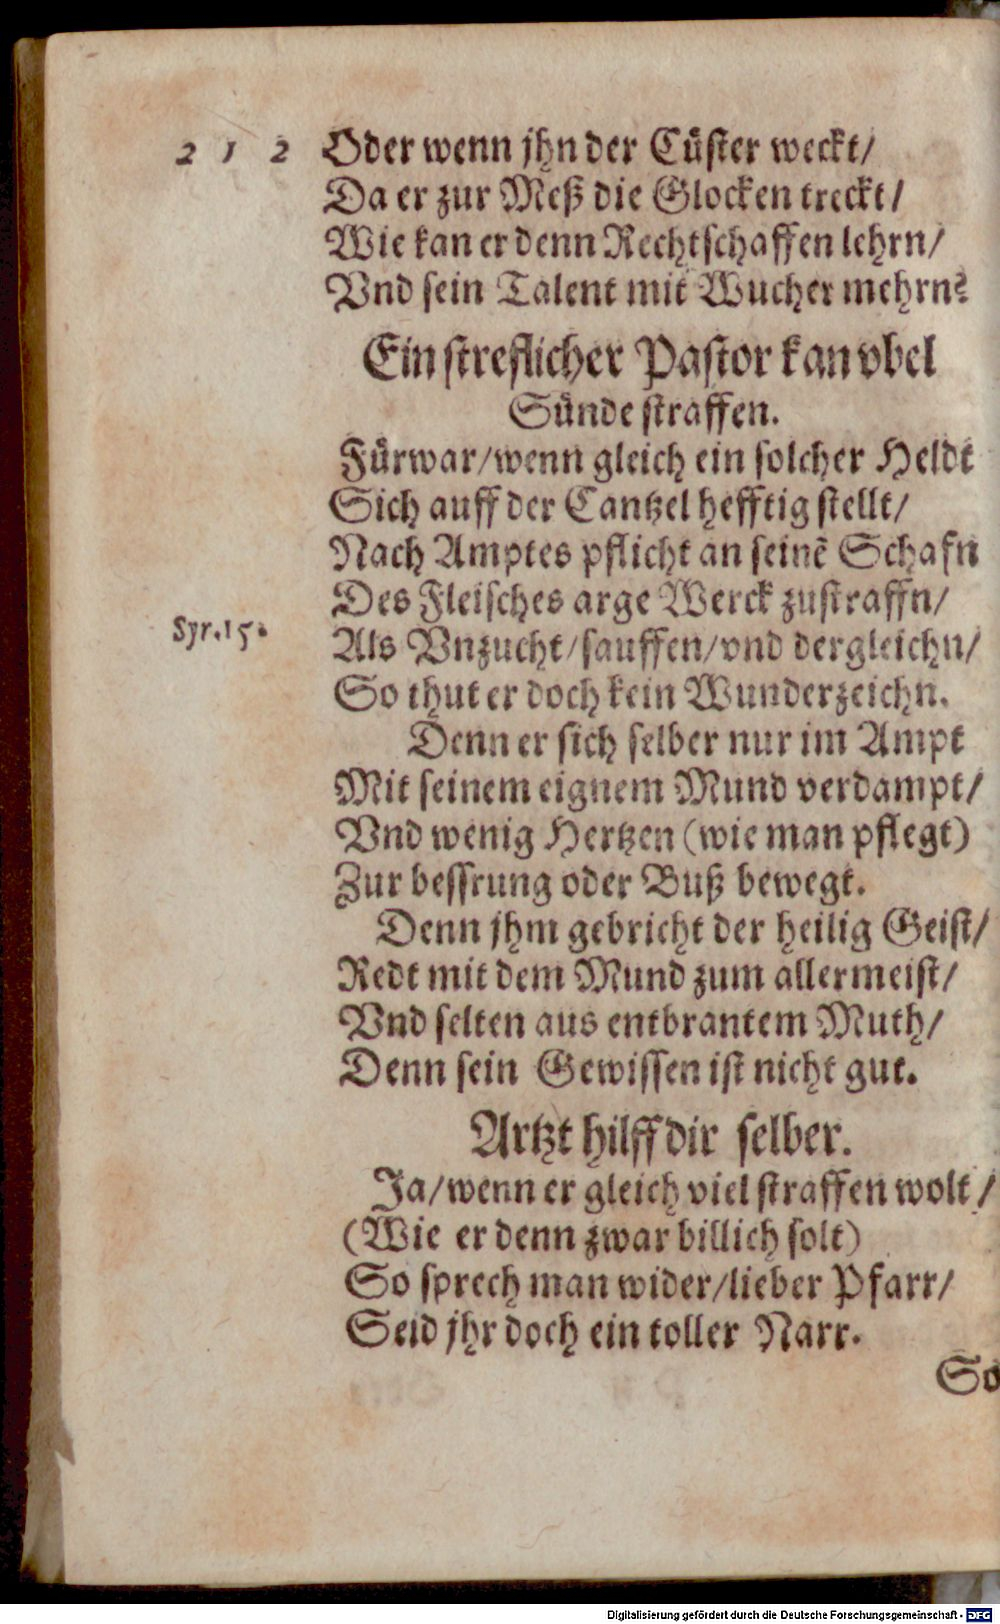 2 1 2 Oder wenn jhn der Cuͤster weckt/
Da er zur Meß die Glocken treckt/
Wie kan er denn Rechtschaffen lehrn/
Vnd sein Talent mit Wucher mehrn?
Ein streflicher Pastor kan vbel
Suͤnde straffen.
Fuͤrwar/wenn gleich ein solcher Heldt
Sich auff der Cantzel hefftig stellt/
Nach Amptes pflicht an seinẽ Schafn
Des Fleisches arge Werck zustraffn/
Syr.15.
Als Vnzucht/sauffen/vnd dergleichn/
So thut er doch kein Wunderzeichn.
Denn er sich selber nur im Ampt
Mit seinem eignem Mund verdampt/
Vnd wenig Hertzen (wie man pflegt)
Zur bessrung oder Buß bewegt.
Denn jhm gebricht der heilig Geist/
Redt mit dem Mund zum allermeist/
Vnd selten aus entbrantem Muth/
Denn sein Gewissen ist nicht gut.
Artzt hilff dir selber.
Ja/wenn er gleich viel straffen wolt/
(Wie er denn zwar billich solt)
So sprech man wider/lieber Pfarr/
Seid jhr doch ein toller Narr.
So
Digitalisierung gefördert durch die Deutsche Forschungsgemeinschaft - DFG